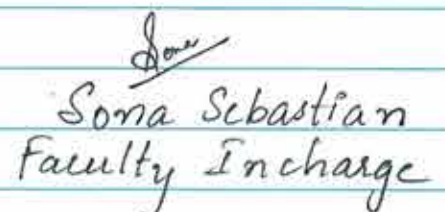 Sona
Sona Sebastian
Faculty Incharge